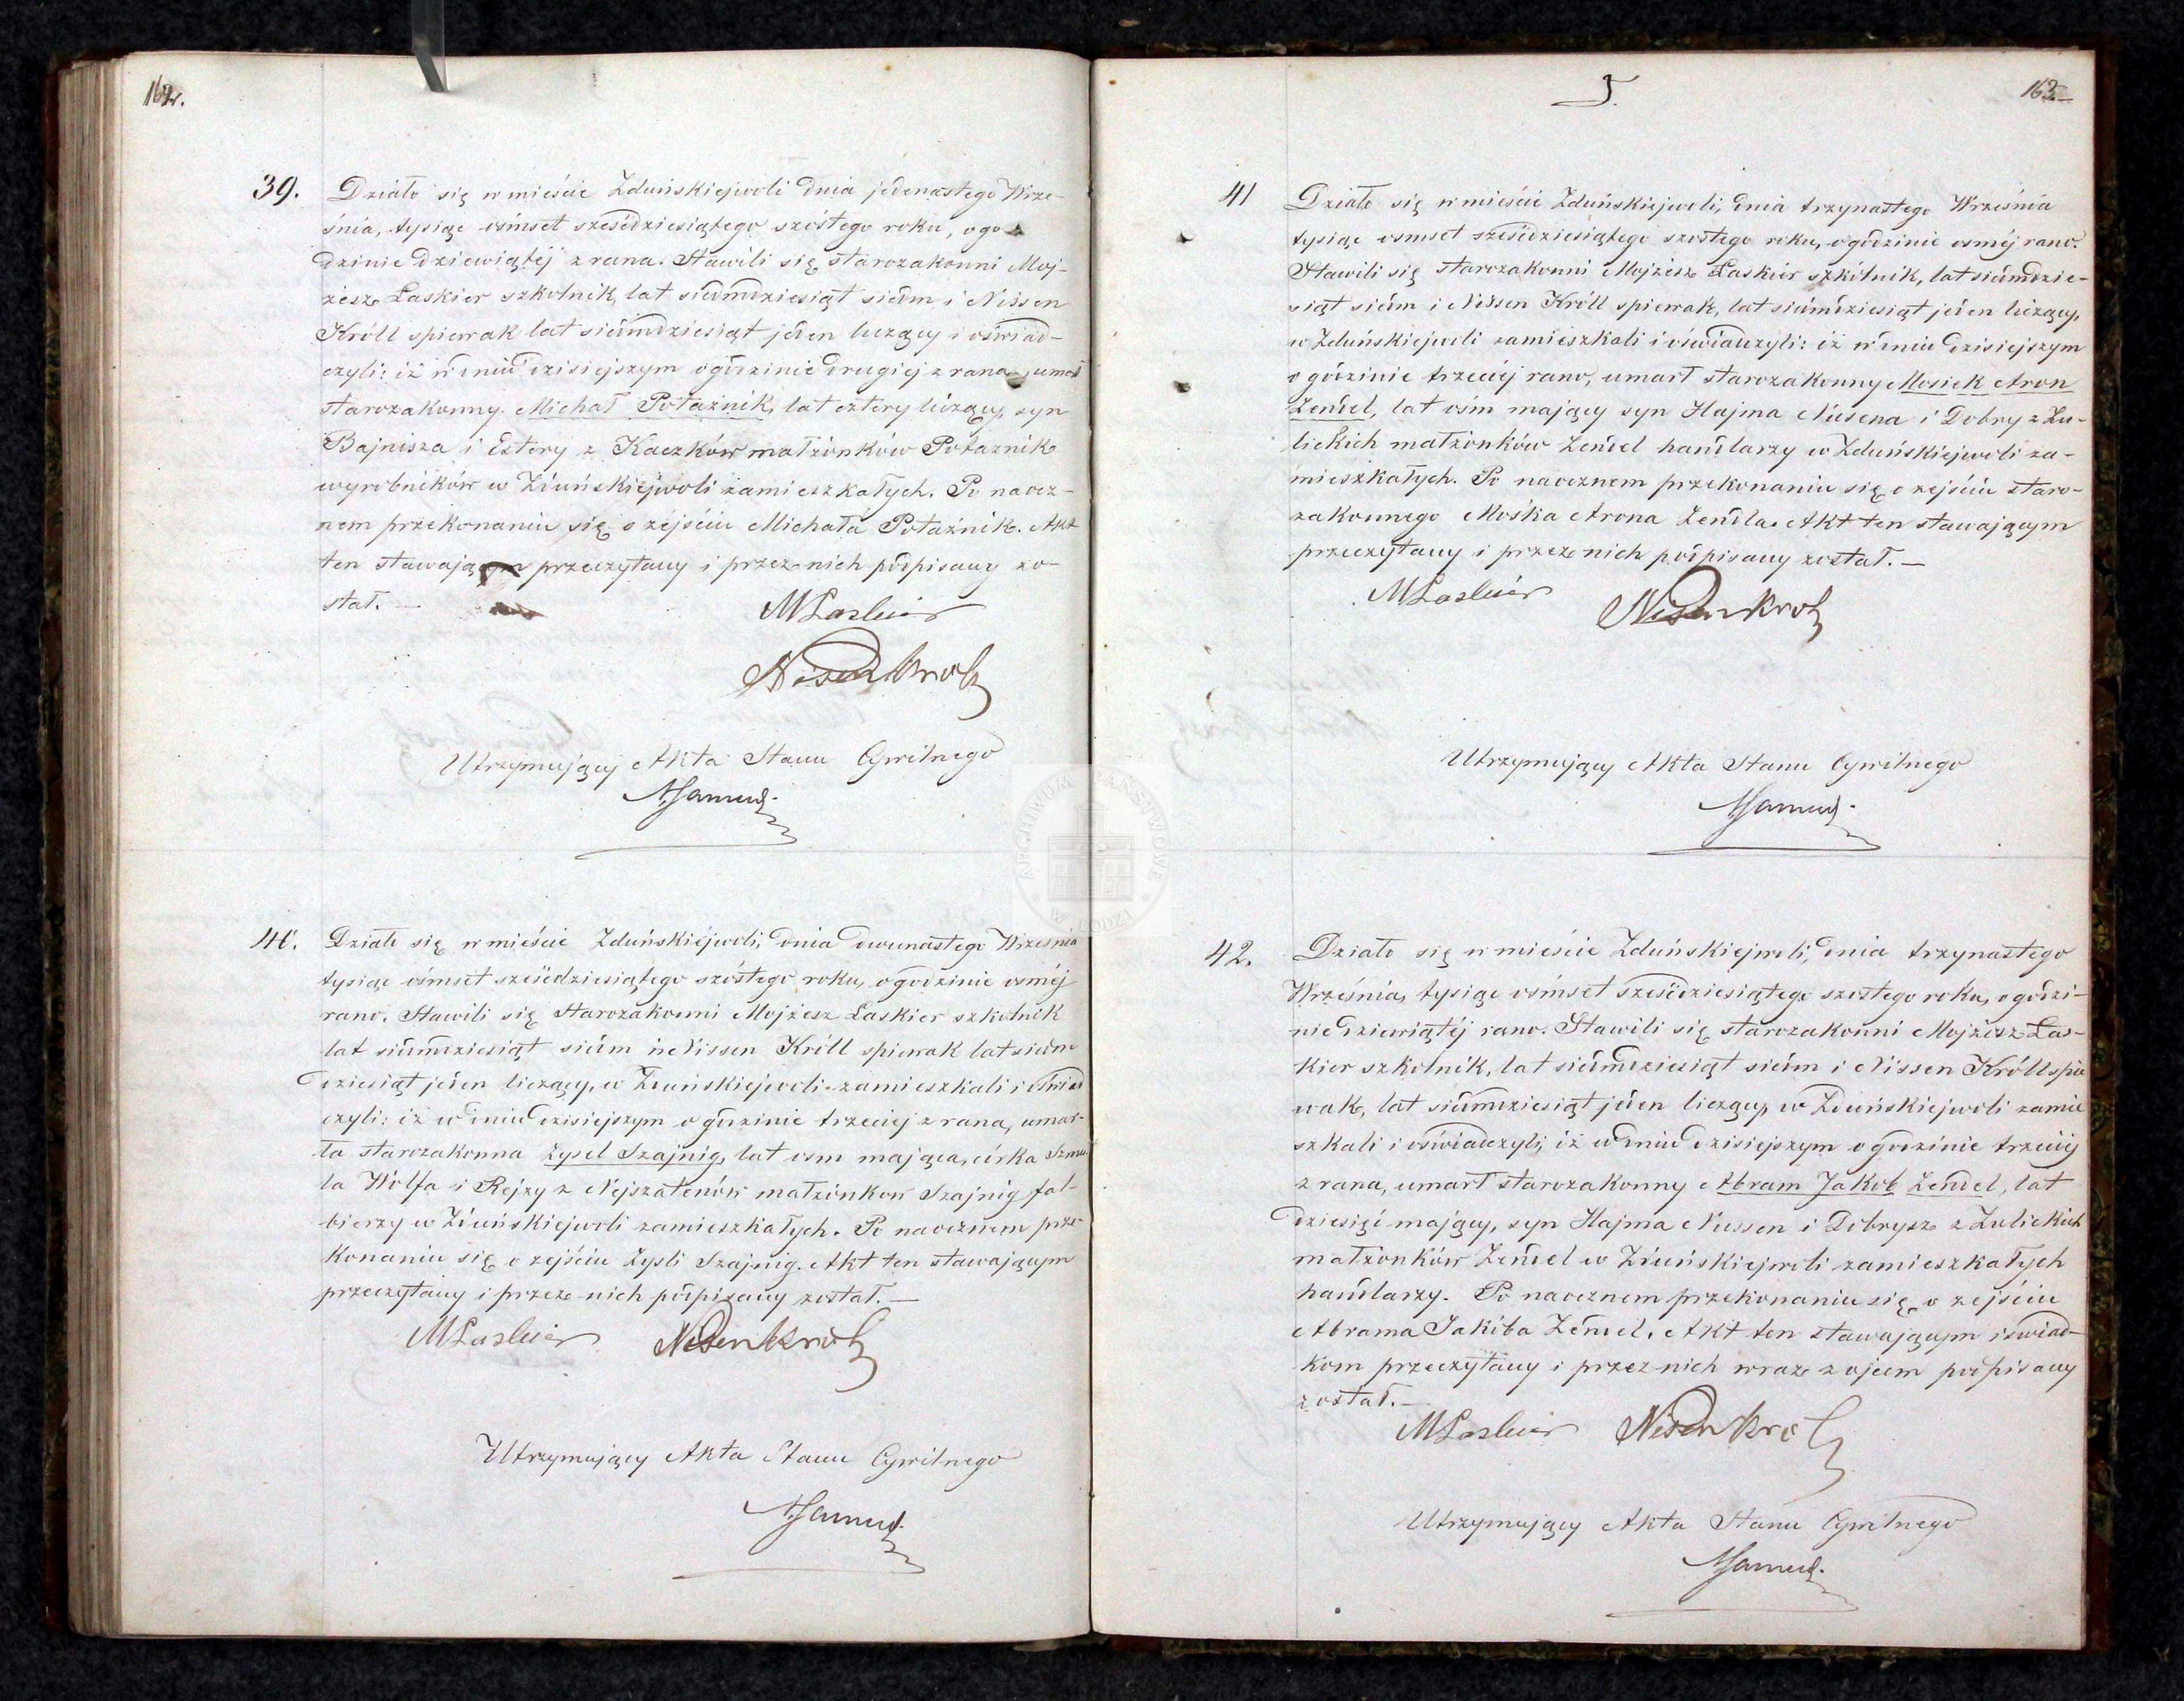 162.
39.
Działo się w mieście Zduńskiejwoli dnia jedenastego Wrze-
śnia, tysiąc ośmset sześćdziesiątego szóstego roku, o go-
dzinie dziewiątéj z rana. Stawili się starozakonni Moj-
żesz Laskier szkolnik, lat siedmdziesiąt siedm i Nissen
Króll spiewak lat siedmdziesiąt jeden liczący i oświad-
czyli: iż w dniu dzisiejszym o godzinie drugiej z rana, umarł
starozakonny. Michał Potaźnik, lat cztery liczący, syn
Bajnisza i Estery z Kaczków małżonków Potaźnik
wyrobników w Zduńskiejwoli zamieszkałych. Po naocz-
nem przekonaniu się o zejściu Michała Potaźnik. Akt
ten stawającym przeczytany i przez nich podpisany zo-
stał. —
MLaskier
Nisen Krol
Utrzymujący Akta Stanu Cywilnego
40.
Działo się w mieście Zduńskiéjwoli, dnia dwunastego Wrzesnia
tysiąc ośmset sześćdziesiątego szóstego roku, o godzinie osméj
rano. Stawili się Starozakonni Mojżesz Laskier szkolnik
lat siedmdziesiąt siedm i Nissen Króll spiewak lat siedm
dziesiąt jeden liczący, w Zduńskiejwoli zamieszkali i oświad
czyli: iż w dniu dzisiejszym o godzinie trzeciej z rana, umar-
ła starozakonna Zysel Szajnig, lat osm mająca, córka Szmu
la Wolfa i Rejzy z Nejszatenów małżonków Szajnig fal-
bierzy w Zduńskiejwoli zamieszkałych. Po naocznem prze-
konaniu się o zejściu Zysli Szajnig. Akt ten stawającym
przeczytany i przez nich podpisany został. —
MLaskier Nisen Krol
Utrzymujący Akta Stanu Cywilnego
163.
41
Działo się w mieście Zduńskiejwoli, dnia trzynastego Września
tysiąc osmset sześćdziesiątego szostego roku, o godzinie osméj rano.
Stawili się starozakonni Mojżesz Laskier szkolnik, lat siedmdzie-
siąt siedm i Nissen Króll spiewak, lat siedmdziesiąt jeden liczący,
w Zduńskiejwoli zamieszkali i oświadczyli: iż w dniu dzisiejszym
o godzinie trzeciéj rano, umarł starozakonny Mosiek Aron
Zendel, lat osm mający syn Hajma Nusena i Dobry z Zu-
lickich małżonków Zendel handlarzy w Zduńskiejwoli za-
mieszkałych. Po naocznem przekonaniu się o zejściu staro-
zakonnego Mośka Arona Zendla. Akt ten stawającym
przeczytany i przez nich podpisany został. —
MLaskier Nisen Krol
Utrzymujący Akta Stanu Cywilnego
42.
Działo się w mieście Zduńskiejwoli, dnia trzynastego
Września, tysiąc ośmset sześćdziesiątego szostego roku, o godzi-
nie dziewiątéj rano. Stawili się starozakonni Mojżesz Las-
kier szkolnik, lat siedmdziesiąt siedm i Nissen Króll spie
wak, lat siedmdziesiąt jeden liczący, w Zduńskiejwoli zamie
szkali i oświadczyli, iż w dniu dzisiejszym o godzinie trzeciéj
z rana, umarł starozakonny Abram Jakob Zendel, lat
dziesięć mający, syn Hajma Nussen i Dobrysz z Zulickich
małżonków Zendel w Zduńskiejwoli zamieszkałych
handlarzy. Po naocznem przekonaniu się o zejściu
Abrama Jakóba Zendel. Akt ten stawającym i swiad-
kom przeczytany i przez nich wraz z ojcem podpisany
został. —
MLaskier Nisen Krol
Utrzymujący Akta Stanu Cywilnego
ARCHIWUM PAŃSTWOWE W ŁODZI